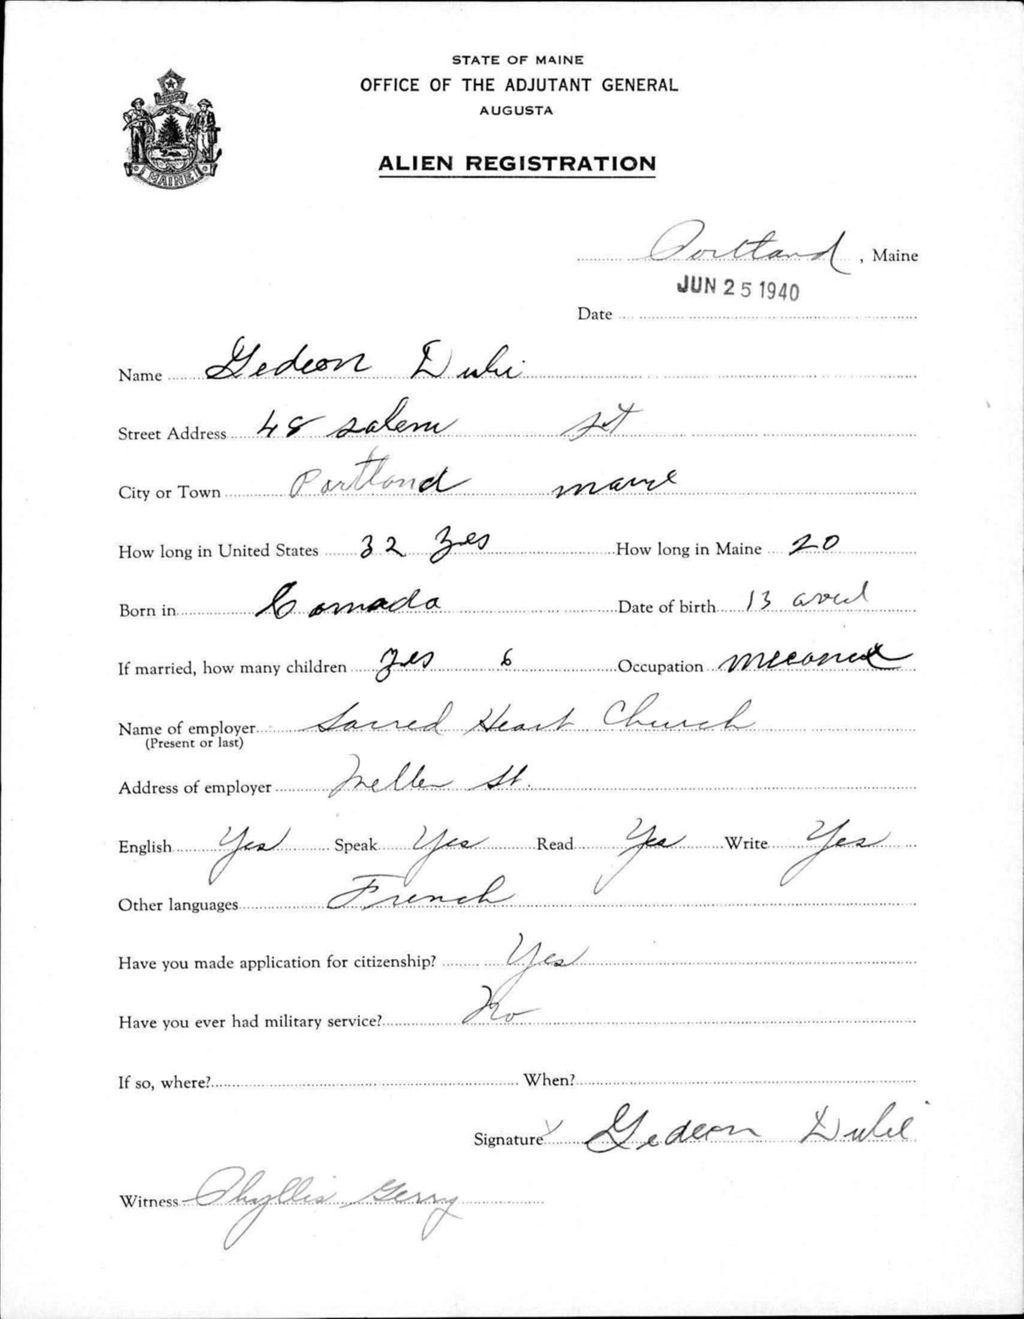 STATE OF MAINE
OFFICE OF THE ADJUTANT GENERAL
AUGUSTA
MAINE
ALIEN REGISTRATION
Portland, Maine
JUN 25 1940
Date
Name Gedeon
Street Address 48 Salem St
City or Town Portland
How long in United States 32 yes How long in Maine 20
Born in Comada Date of birth 13
If married, how many children yes 6 Occupation
Name of employer Sacred Heart Church
(Present or last)
Address of employer Mellen St.
English Yes Speak Yes Read Yes Write Yes
Other languages French
Have you made application for citizenship? Yes
Have you ever had military service? No
If so, where? When?
Signature Gedeon
Witness Phyllis Gerry